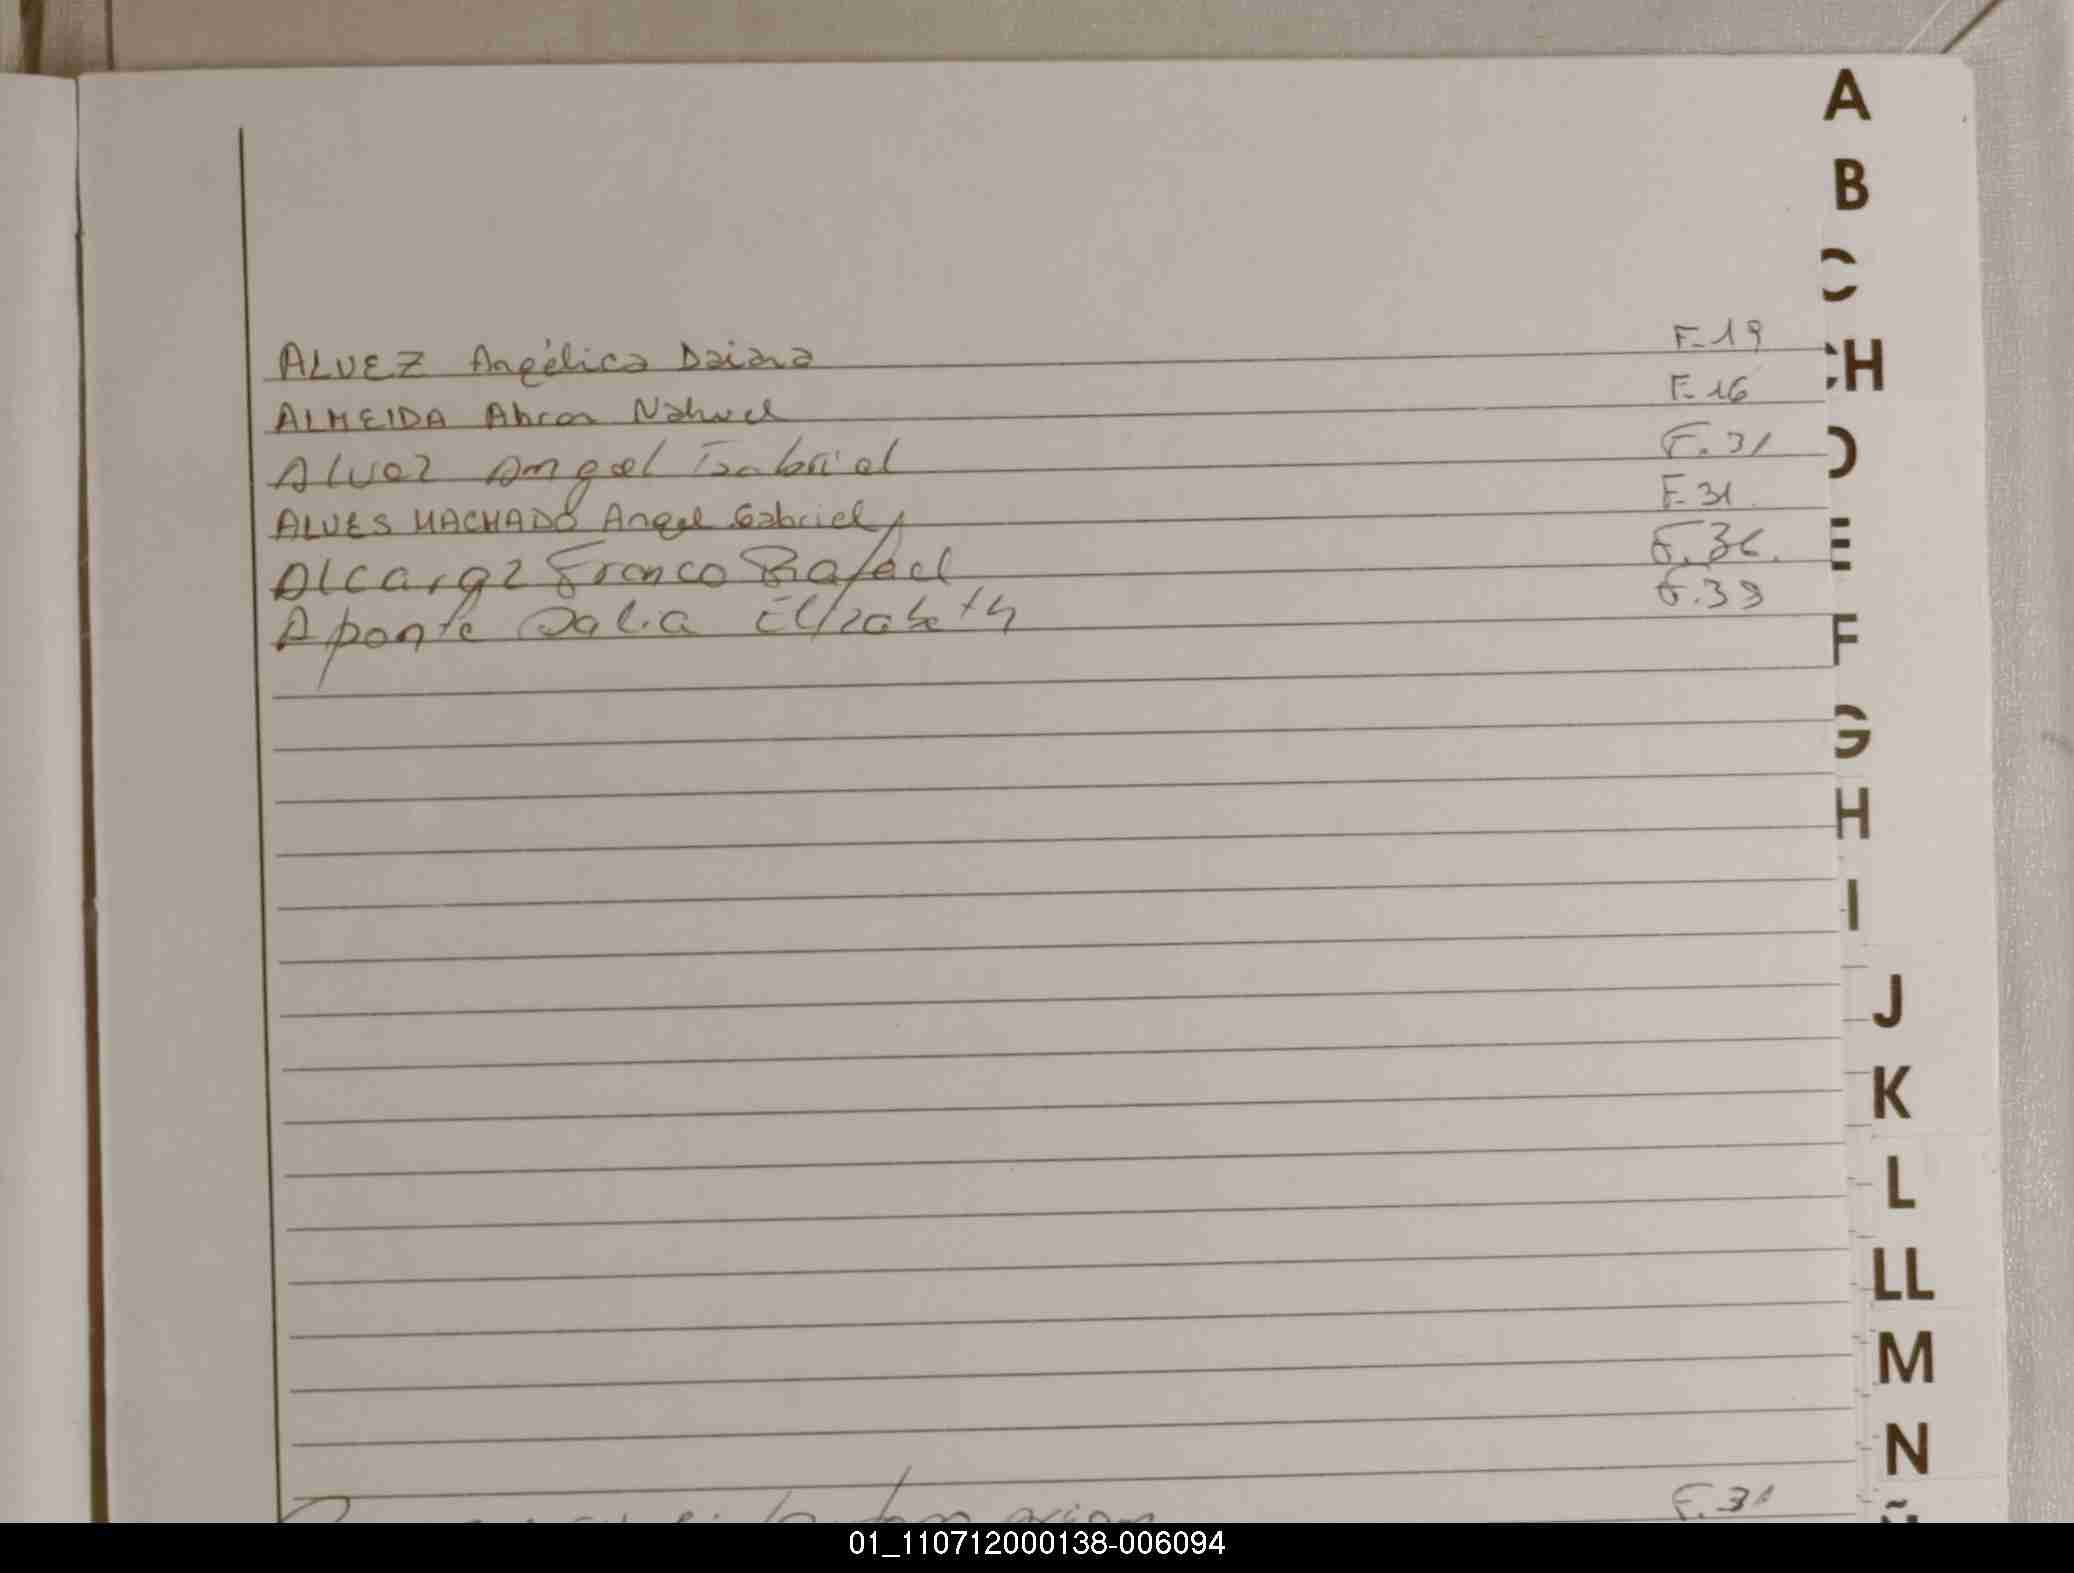 A
B
C
CH
ALVEZ Angélica Daiana F-19
ALMEIDA Ahron Nahuel F-16
D
Alvez Angel Gabriel F.31
ALVES MACHADO Angel Gabriel F-31
E
Alcaraz Franco Rafael F.36.
Aponte Dalia Elizabeth F.39
F
G
H
I
J
K
L
LL
M
N
F.31
01_110712000138-006094